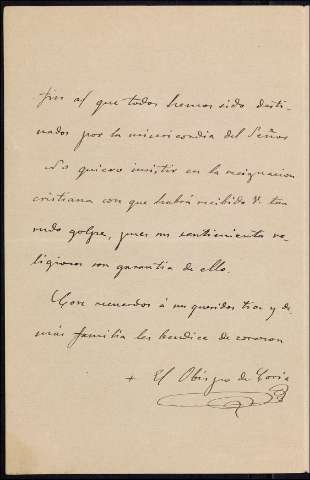 fin al que todos hemos sido desti-
nados por la misericordia del Señor
No quiero insistir en la resignacion
cristiana con que habrá recibido V. tan
rudo golpe, pues sus sentimientos re-
ligiosos son garantia de ello.
Con recuerdos á sus queridos tios y de-
más familia les bendice de corazon
+ El Obispo de Coria